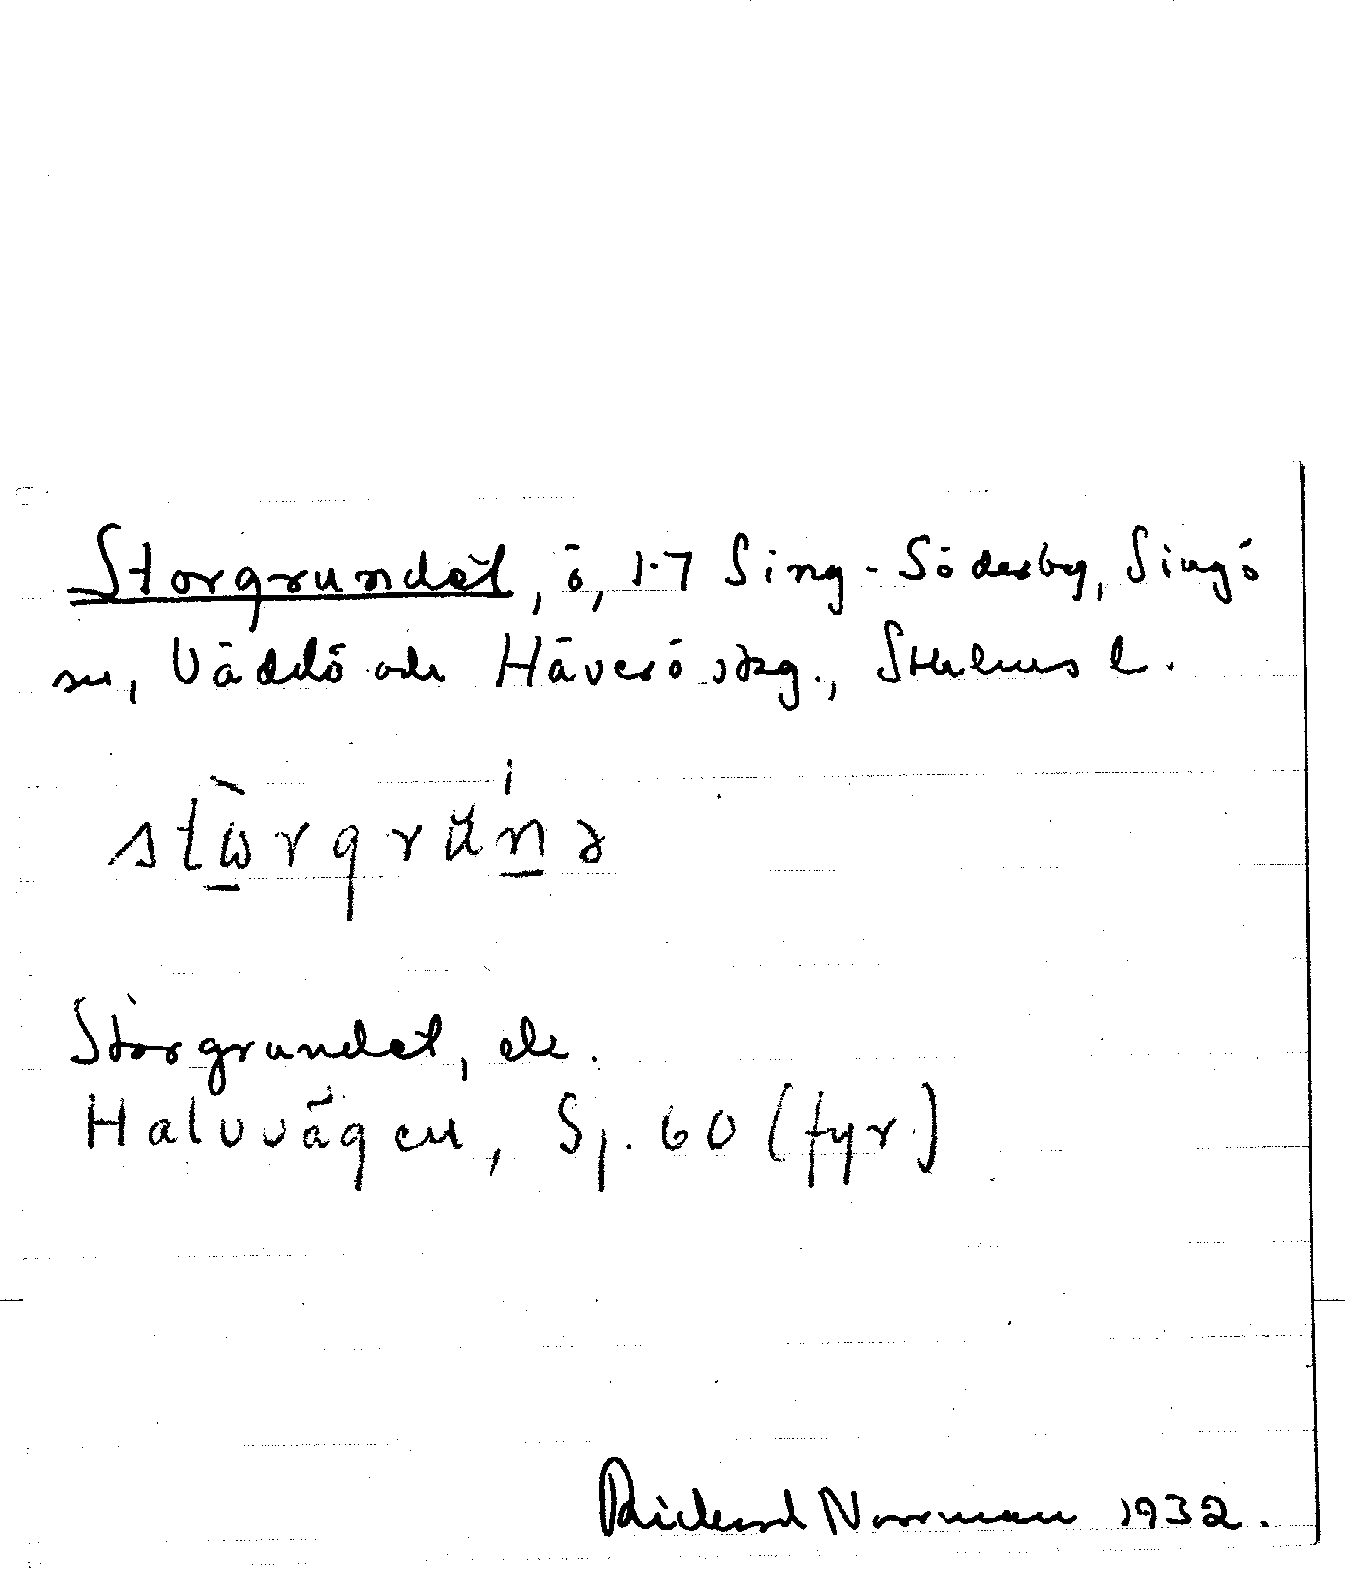 Storgrundet, ö, 1.7 Sing-Söderby, Singö
sn, Väddö och Häverö skg., Sthlms l.
stὼrgrún̲ə
Storgrundet, ek.
Halvvägen, Sj. 60 (fyr.)
Rickard Norrman 1932.